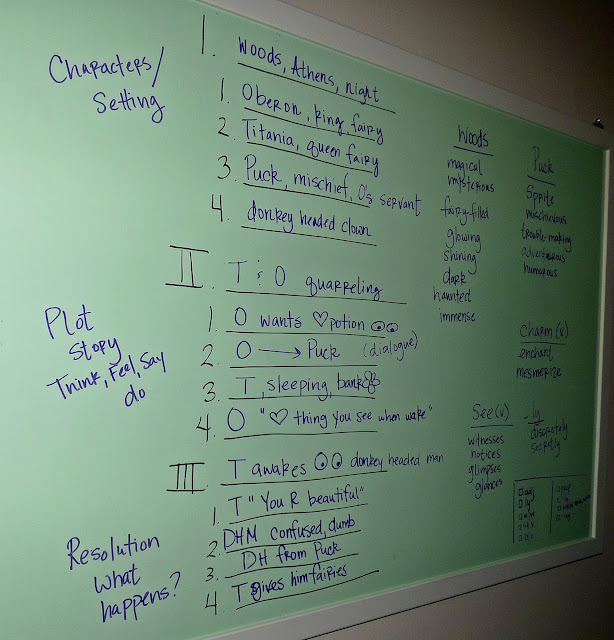 Characters/
Setting
I. Woods, Athens, night
1. Oberon, king fairy
2. Titania, queen fairy
3. Puck, mischief, O's servant
4. donkey headed clown
Plot
Story
Think, Feel, Say
do
II. T & O quarreling
1. O wants ♡ potion
2. O → Puck (dialogue)
3. T, sleeping, bank
4. O "♡ thing you see when wake"
Resolution
what
happens?
III. T awakes donkey headed man
1. T "You R beautiful"
2. DHM confused, dumb
3. DH from Puck
4. T gives him fairies
Woods
magical
mysterious
fairy-filled
glowing
shining
dark
haunted
immense
Puck
Sprite
mischievous
trouble-making
adventurous
humorous
Charm (v)
enchant
mesmerize
See (v)
witnesses
notices
glimpses
glances
-ly
secretly